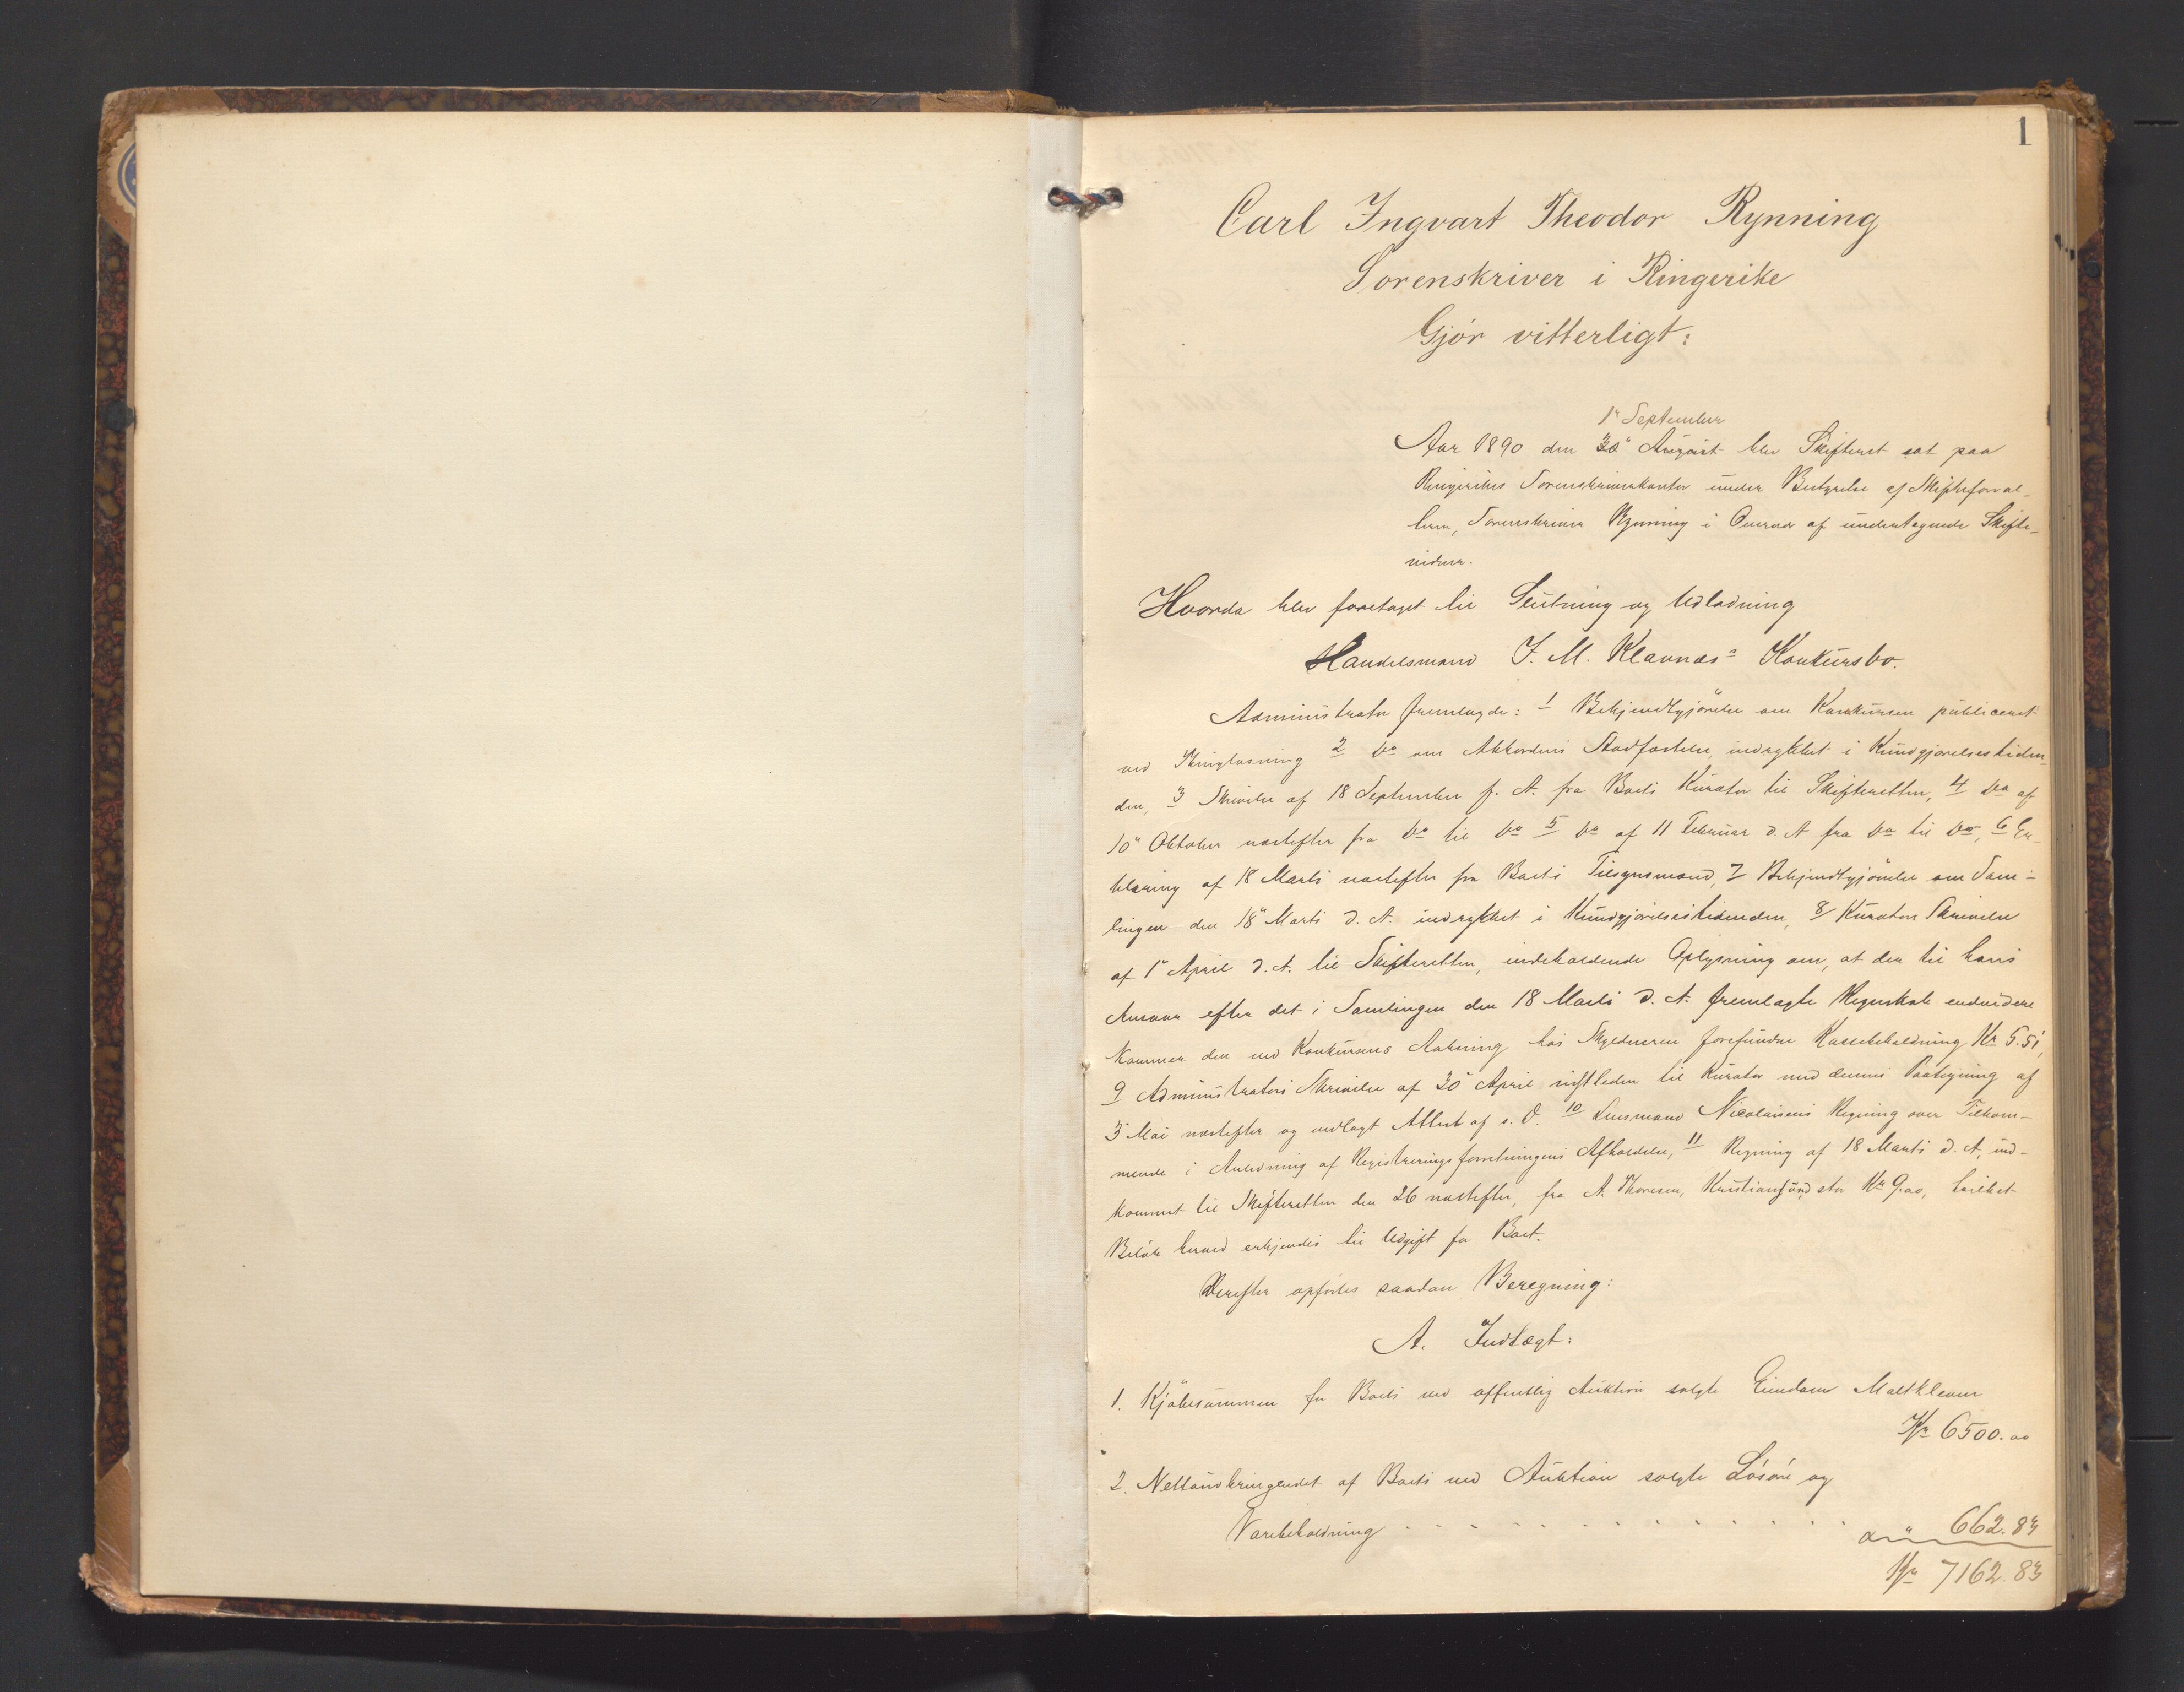 1
Carl Ingvart Theodor Rynning
Sorenskriver i Ringerike
Gjør vitterligt:
1ste September
Aar 1890 den 30te August blev Skifteret sat paa
Ringerikes Sorenskriverkontor under Bestyrelse af Skifteforval-
teren, Sorenskriver Rynning i Overvær af undertegnede Skifte-
vidner.
Hvorda blev foretaget til Slutning og Udlodning
Handelsmand J. M. Klævnæs's Konkursbo.
Administrator fremlagde: 1 Bekjendtgjørelse om Konkursen publiceret
ved Thinglæsning 2 do om Akkordens Stadfæstelse indrykket i Kundgjørelsestiden-
den, 3 Skrivelse af 18 September f. A. fra Boets Kurator til Skifteretten, 4 do af
10de Oktober næstefter fra do til do 5 do af 11 Februar d. A fra do til do, 6 Er-
klæring af 18 Marts næstefter fra Boets Tilsynsmænd, 7 Bekjendtgjørelse om Sam-
lingen den 18de Marts d. A. indrykket i Kundgjørelsestidenden, 8 Kurators Skrivelse
af 1ste April d. A. til Skifteretten, indeholdende Oplysning om, at der til hans
Ansvar efter det i Samlingen den 18 Marts d. A. fremlagte Regnskab endvidere
kommer den ved Konkursens Aabning hos Skyldneren forefundne Kassebeholdning Kr 5.51,
9 Administrators Skrivelse af 30 April sidstleden til Kurator med dennes Paategning af
3 Mai næstefter og vedlagt Attest af s. D. 10 Lensmand Nicolaisens Regning over Tilkom-
mende i Anledning af Registreringsforretningens Afholdelse, 11 Regning af 18 Marts d. A, ind-
kommet til Skifteretten den 26 næstefter, fra A. Thoresen, Kristiansund, stor Kr 9.00, hvilket
Beløb herved erkjendes til Udgift for Boet.
Derefter opførtes saadan Beregning:
A. Indtægt:
1. Kjøbesummen for Boets ved offentlig Auktion solgte Eiendom
Kr 6500.00
2. Nettoudbringendet af Boets ved Auktion solgte Løsøre og
Varebeholdning . . . . . . . . . . . . 662.83
Kr 7162.83